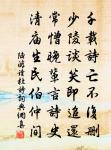 千載詩亡不復刪
少陵談笑即追還
常憎晚輩言詩史
清廟生民伯仲間
陸游讀杜詩